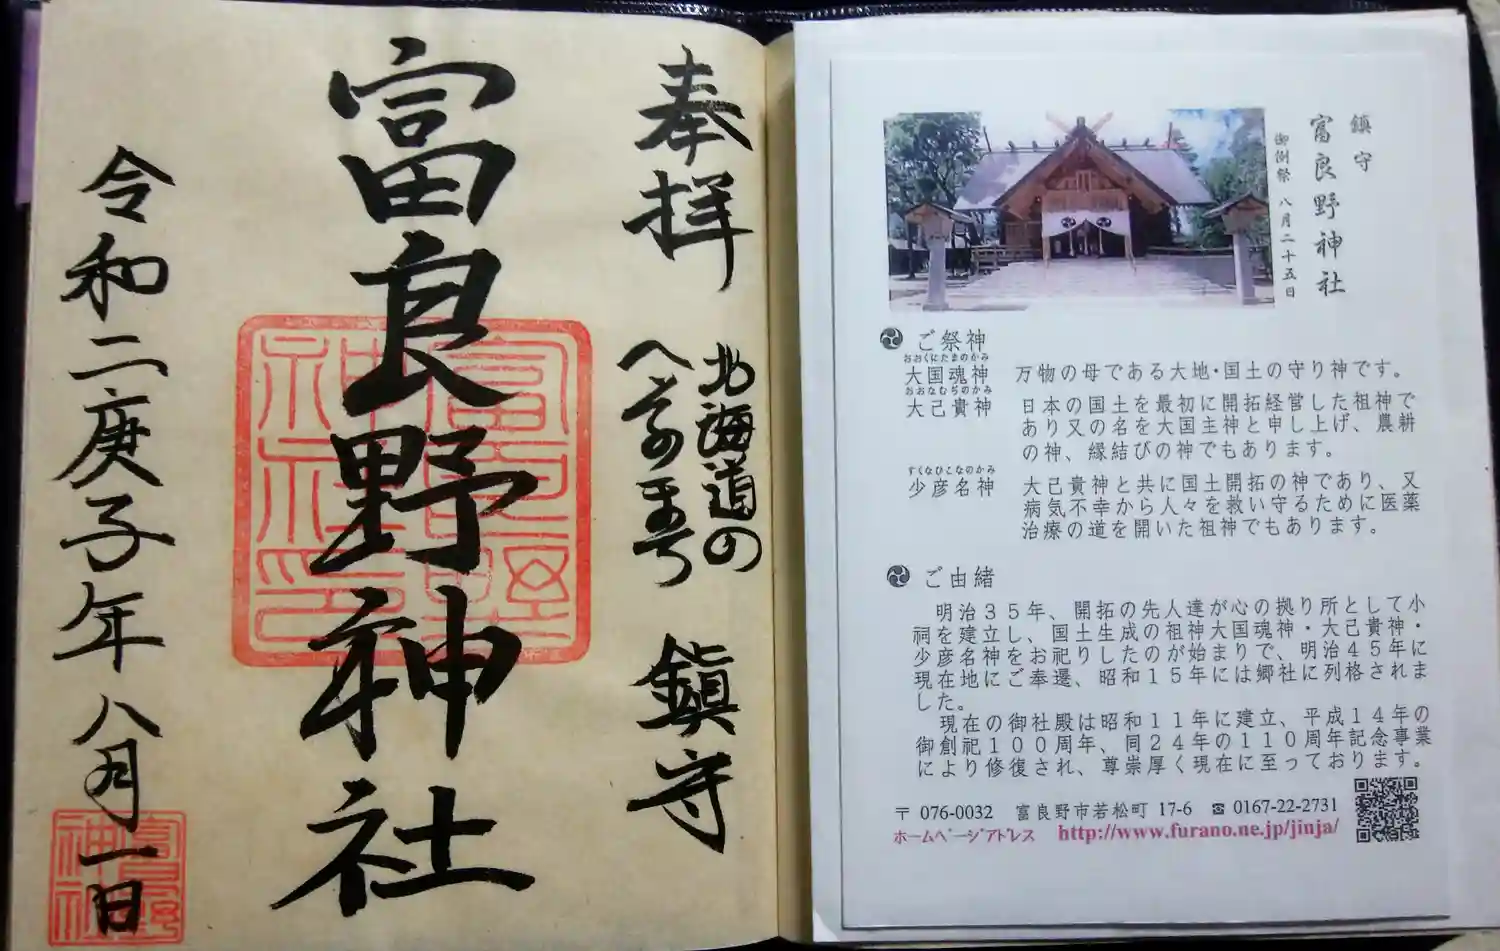 奉拝
北海道の
へそのまち
鎮守
富良野神社
富良野
神社印
令和二庚子年八月一日
富良野
神社
鎮守
富良野神社
御例祭 八月二十五日
ご祭神
おおくにたまのかみ
大国魂神 万物の母である大地・国土の守り神です。
おおなむぢのかみ
大己貴神 日本の国土を最初に開拓経営した祖神で
あり又の名を大国主神と申し上げ、農耕
の神、縁結びの神でもあります。
すくなひこなのかみ
少彦名神 大己貴神と共に国土開拓の神であり、又
病気不幸から人々を救い守るために医薬
治療の道を開いた祖神でもあります。
ご由緒
明治35年、開拓の先人達が心の拠り所として小
祠を建立し、国土生成の祖神大国魂神・大己貴神・
少彦名神をお祀りしたのが始まりで、明治45年に
現在地にご奉遷、昭和15年には郷社に列格されま
した。
現在の御社殿は昭和11年に建立、平成14年の
御創祀100周年、同24年の110周年記念事業
により修復され、尊崇厚く現在に至っております。
〒 076-0032 富良野市若松町 17-6 ☎ 0167-22-2731
ホームページアドレス http://www.furano.ne.jp/jinja/